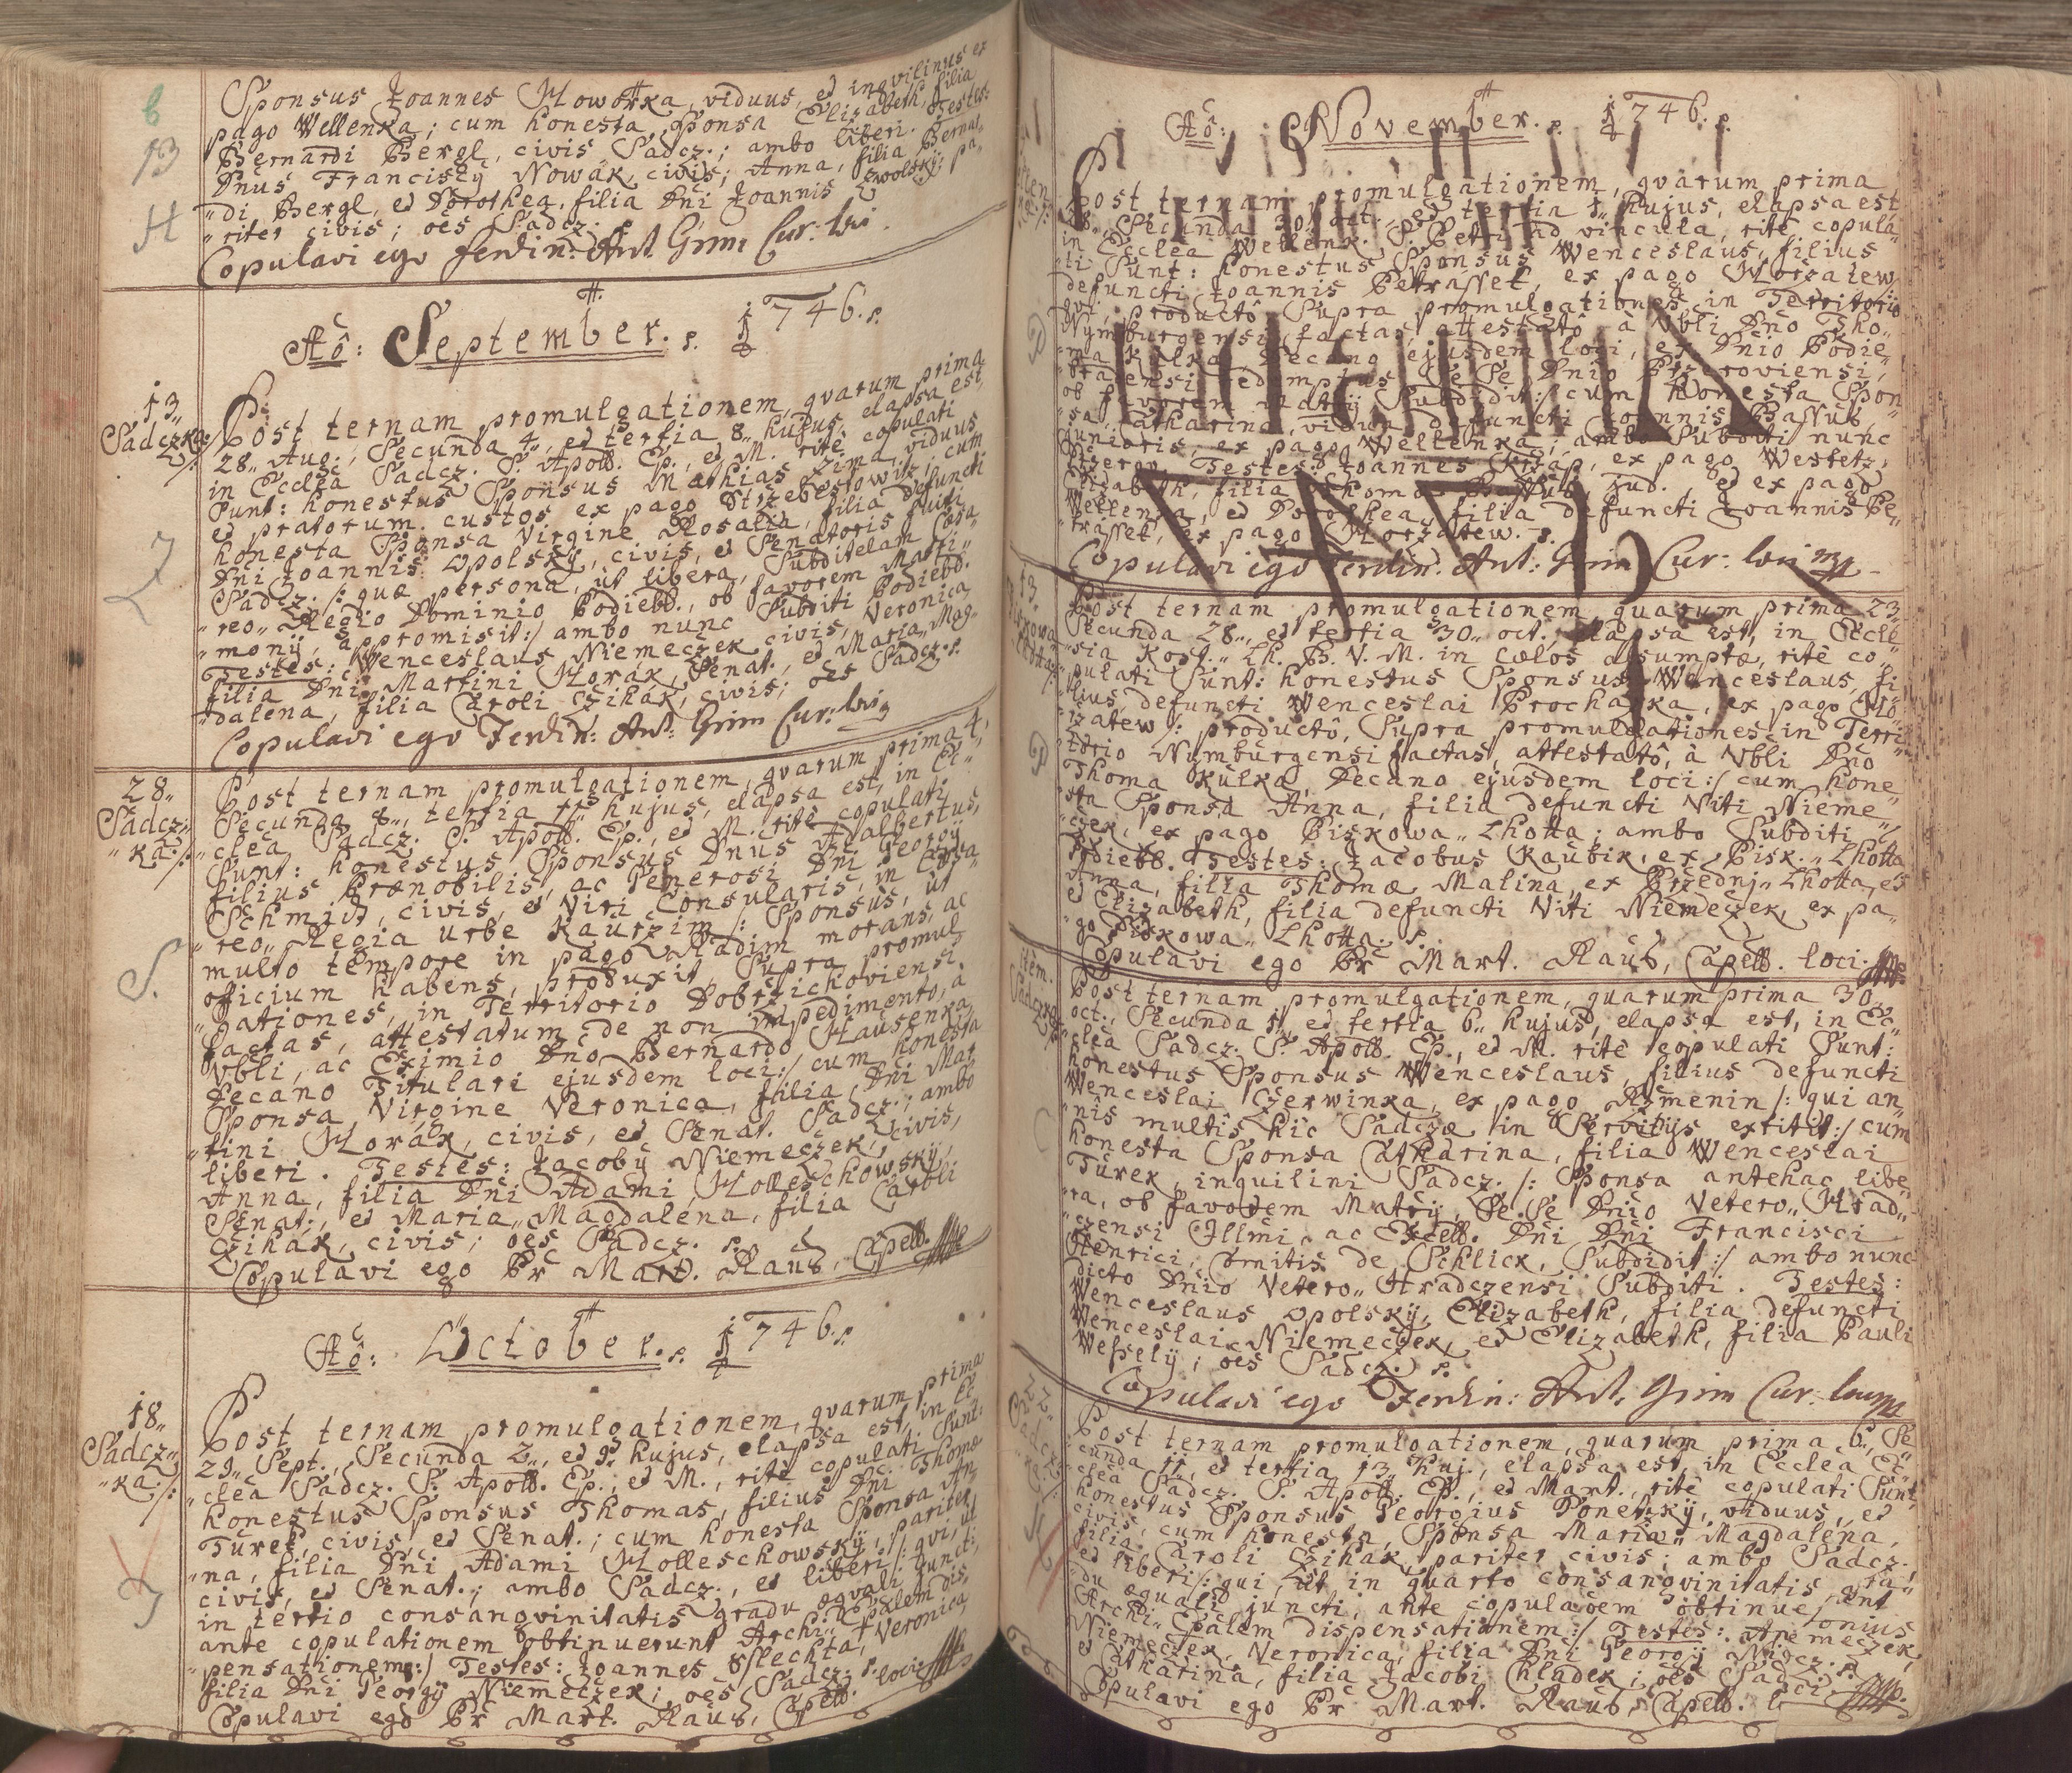 6
B
H
Sponsus Joannes Howorka, viduus, et inqvilinus ex
pago Wellenka; cum honesta Sponsa Elizabeth, filia
Bernardi Bergl, civis Sadcz.; ambo liberi. Testes:
Dnus Franciscq Nowák, civis; Anna, filia Bernar„
„di Bergl, et Dorothea, filia Dni Joannis Zwolskÿ, pa„
„riter civis; oes Sadcz.
Copulavi ego Ferdin: Ant: Grim Cur: loci
Aô: September. 1746.
13„
Sadczka
Z
Post ternam promulgationem, qvarum prima
28„ Aug., Secunda 4„, et tertia 8„ hujus, elapsa est
in Ecclea Sadcz. S. Apoll. Ep., et M. rite copulati
Sunt: honestus Sponsus Mathias Zima, viduus
et pratorum custos ex pago Strzebestowitz; cum
honesta Sponsa Virgine Rosalia, filia defuncti
Dni Joannis Opolskÿ, civis, et Senatoris fuiti
Sadcz. /: quæ persona, ut libera, Subditelam Cæsa„
„reo„ Regio Dominio Podiebr., ob favorem Matri„
„monÿ, appromisit :/ ambo nunc Subditi Podiebr.
Testes: Wenceslaus Niemeczek civis, Veronica
filia Dni Martini Horák, Senat., et Maria Mag„
„dalena, filia Caroli Czihák, civis; oes Sadcz.
Copulavi ego Ferdin: Ant: Grim Cur: loci
28„
Sadcz„
„ka:
S.
Post ternam promulgationem, qvarum prima 4,
Secunda 8„, tertia 11„ hujus, elapsa est, in Ec„
„clea Sadcz. S. Apoll. Ep., et M. rite copulati
Sunt: honestus Sponsus Dnus Adalbertus,
filius Prænobilis, ac Generosi Dni Georgÿ
Schmidt, civis, et Viri Consularis, in Cæsa„
„reo„ Regia urbe Kaurzim /: Sponsus, ut
multo tempore in pago Radim morans, ac
officium habens, produxit, Supra promul„
„gationes, in Territorio Dobrzichoviensi
factas, attestatum de non impedimento, à
Vbli, ac Eximio Dno Bernardo Hausenka,
Decano Titulari ejusdem loci :/ cum honesta
Sponsa Virgine Veronica, filia Dni Mar„
„tini Horák, civis, et Senat. Sadcz.; ambo
liberi. Testes: Jacobÿ Niemeczek, civis,
Anna, filia Dni Adami Holleschowskÿ,
Senat., et Maria„ Magdalena, filia Caroli
Czihák, civis; oes Sadcz.
Copulavi ego Pr Mart. Raus, Capell.
Aô: October. 1746.
18„
Sadcz„
„ka:
T
Post ternam promulgationem, qvarum prima
29„ Sept., Secunda 2„, et 9„ hujus, elapsa est, in Ec„
„clea Sadcz. S. Apoll. Ep., et M., rite copulati Sunt:
honestus Sponsus Thomas, filius Dni Thomæ
Turek, civis, et Senat.; cum honesta Sponsa An„
„na, filia Dni Adami Holleschowskÿ, pariter
civis, et Senat.; ambo Sadcz., et liberi /: qvi, ut
in tertio consangvinitatis gradu æqvali juncti,
ante copulationem obtinuerunt Archi„ Epalem dis„
„pensationem :/ Testes: Joannes Sslechta, Veronica,
filia Dni Georgÿ Niemeczek; oes Sadcz.
Copulavi ego Pr Mart. Raus, Capell. loci
Aô: November. 1746.
Post ternam promulgationem, qvarum prima
28„, Secunda 30„ oct., et tertia 1„ hujus, elapsa est
in Ecclea Wellenk. S. Petri ad vincula, rite copula„
„ti Sunt: honestus Sponsus Wenceslaus, filius
defuncti Joannis Petrasset, ex pago Horzatew
/: qvi, productô Supra promulgationes in Territorio
Nymburgensi factas, attestatô à Vbli Dno Tho„
„ma Kulka Decano ejusdem loci, ex Dnio Podie„
„bradensi redemptus, Se Se Dnio Przeroviensi,
ob favorem Matrÿ, Subdidit :/ cum honesta Spon„
„sa Catharina, vidua defuncti Joannis Bassus,
junioris, ex pago Wellenka; ambo Subditi nunc
Przerov. Testes: Joannes Krzap, ex pago Westetz,
Elizabeth, filia Thomæ Bassus, Jud., et ex pago
Wellenka, et Dorothea, filia defuncti Joannis Pe„
„trasset, ex pago Horzatew.
Copulavi ego Ferdin: Ant: Grim Cur: loci mp
13.
P
Post ternam promulgationem, quarum prima 23
Secunda 28„, et tertia 30„ oct., elapsa est, in Eccle„
„sia Kost.„ Lh. B. V. M. in cælos assumptæ, rite co„
„pulati Sunt: honestus Sponsus Wenceslaus, fi„
„lius defuncti Wenceslai Prochazka, ex pago Ho„
„rzatew /: productô, Supra promulgationes in Terri„
„torio Nymburgensi factas, attestatô, à Vbli Dno
Thoma Kulka, Decano ejusdem loci :/ cum hone„
„sta Sponsa Anna, filia defuncti Viti Nieme„
„czek, ex pago Piskowa„ Lhotta; ambo Subditi
Podiebr. Testes: Jacobus Kaubik, ex Pisk.„ Lhotta
Anna, filia Thomæ Malina, ex Przednj„ Lhotta,
et Elizabeth, filia defuncti Viti Niemeczek, ex pa„
„go Piskowa„ Lhotta.
Copulavi ego Pr Mart. Raus, Capell. loci
Item.
Sadczka
C
Post ternam promulgationem, quarum prima 30
oct., Secunda 1„, et tertia 6„ hujus, elapsa est, in Ec„
„clea Sadcz. S. Apoll. Ep., et M. rite copulati Sunt:
honestus Sponsus Wenceslaus, filius defuncti
Wenceslai Czerwinka, ex pago Rzmenin /: qui an„
„nis multis hic Sadczæ in Servitÿs extitit :/ cum
honesta Sponsa Catharina, filia Wenceslai
Turek, inquilini Sadcz. /: Sponsa antehac libe„
„ra, ob favorem Matrÿ, Se Se Dnio Vetero„ Hrad„
„czensi Illmi, ac Excell. Dni Dni Francisci
Henrici, Comitis de Schlick, Subdidit :/ ambo nunc
dicto Dnio Vetero„ Hradczensi Subditi. Testes:
Wenceslaus Opolskÿ, Elizabeth, filia defuncti
Wenceslai Niemeczek, et Elizabeth, filia Pauli
Wesselÿ; oes Sadcz.
Copulavi ego Ferdin: Ant: Grim Cur: loci mp
22„
Sadcz„
Post ternam promulgationem, quarum prima 6„, Se„
„cunda 11, et tertia 13 huj., elapsa est, in Ecclea
Sadcz. S. Apoll. Ep., et Mart., rite copulati Sunt
honestus Sponsus Georgius Ponetzkÿ, viduus, et
civis, cum honesta Sponsa Maria„ Magdalena,
filia Caroli Czihák pariter civis; ambo Sadcz.
et liberi /: qui, ut in quarto consangvinitatis gra„
„du æquali juncti, ante copulaoem obtinuerunt
Archi„ Epalem dispensationem :/ Testes: Antonius
Niemeczek, Veronica, filia Dni Georgÿ Niemeczek,
et Catharina, filia Jacobi Chladek; oes Sadcz.
Copulavi ego Pr Mart. Raus, Capell.